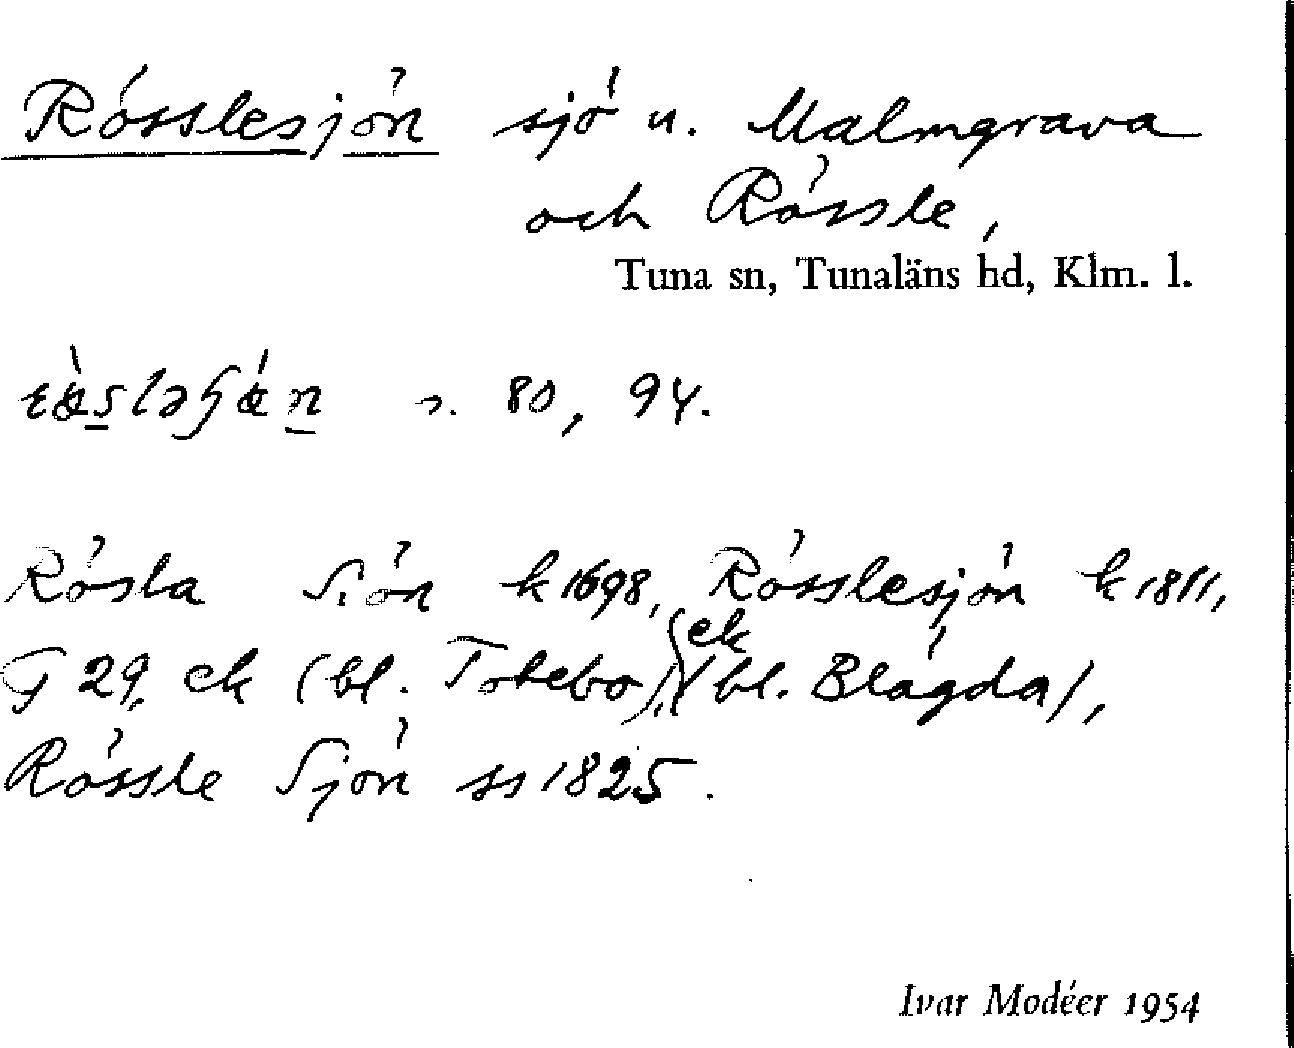 Rösslesjön sjö u. Malmgrava
och Rössle,
Tuna sn, Tunaläns hd, Klm. l.
s. 80, 94.
Rösla Siön k 1698, Rösslesjön k 1811,
G 29, ek (bl. Totebo), ek (bl. Blågda),
Rössle Sjön ss 1825.
Ivar Modéer 1954